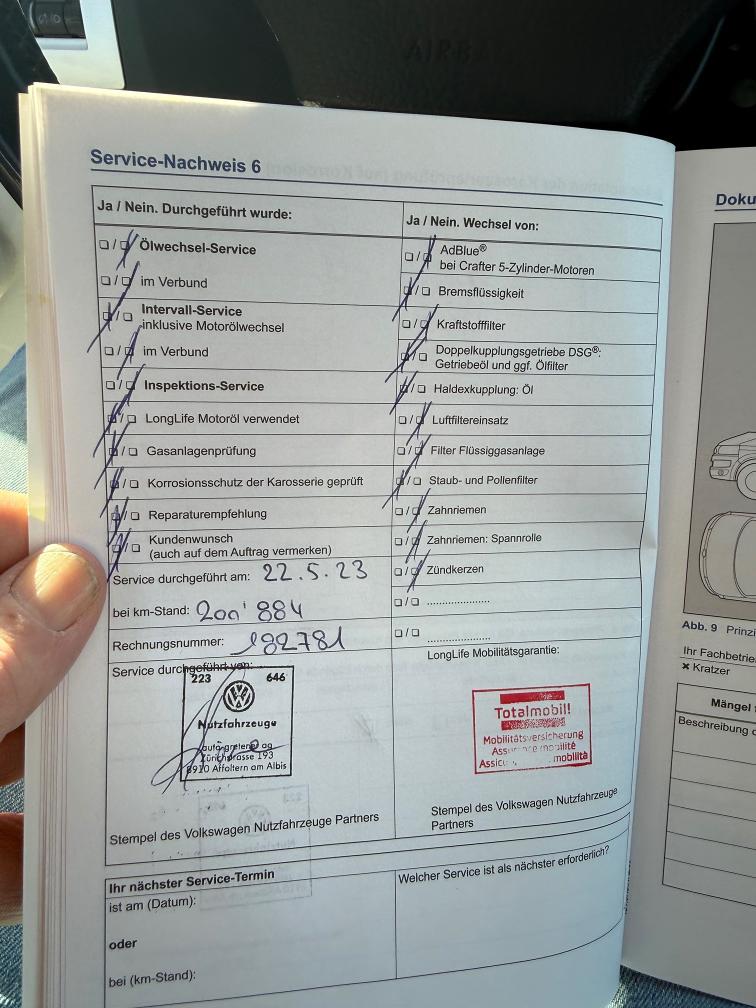 AIRBA
Service-Nachweis 6
Ja / Nein. Durchgeführt wurde:
Ölwechsel-Service
im Verbund
Intervall-Service
inklusive Motorölwechsel
im Verbund
Inspektions-Service
LongLife Motoröl verwendet
Gasanlagenprüfung
Korrosionsschutz der Karosserie geprüft
Reparaturempfehlung
Kundenwunsch
(auch auf dem Auftrag vermerken)
Service durchgeführt am: 22.5.23
bei km-Stand: 200'884
Rechnungsnummer: 182781
Service durchgeführt von:
223 646
Nutzfahrzeuge
auto greiener ag
Zürichstrasse 193
8910 Affoltern am Albis
Stempel des Volkswagen Nutzfahrzeuge Partners
Ja / Nein. Wechsel von:
AdBlue®
bei Crafter 5-Zylinder-Motoren
Bremsflüssigkeit
Kraftstofffilter
Doppelkupplungsgetriebe DSG®:
Getriebeöl und ggf. Ölfilter
Haldexkupplung: Öl
Luftfiltereinsatz
Filter Flüssiggasanlage
Staub- und Pollenfilter
Zahnriemen
Zahnriemen: Spannrolle
Zündkerzen
LongLife Mobilitätsgarantie:
Totalmobil!
Mobilitätsversicherung
mobilité
mobilità
Stempel des Volkswagen Nutzfahrzeuge
Partners
Ihr nächster Service-Termin
ist am (Datum):
oder
bei (km-Stand):
Welcher Service ist als nächster erforderlich?
Doku
Abb. 9 Prinzi
Ihr Fachbetrie
× Kratzer
Mängel
Beschreibung